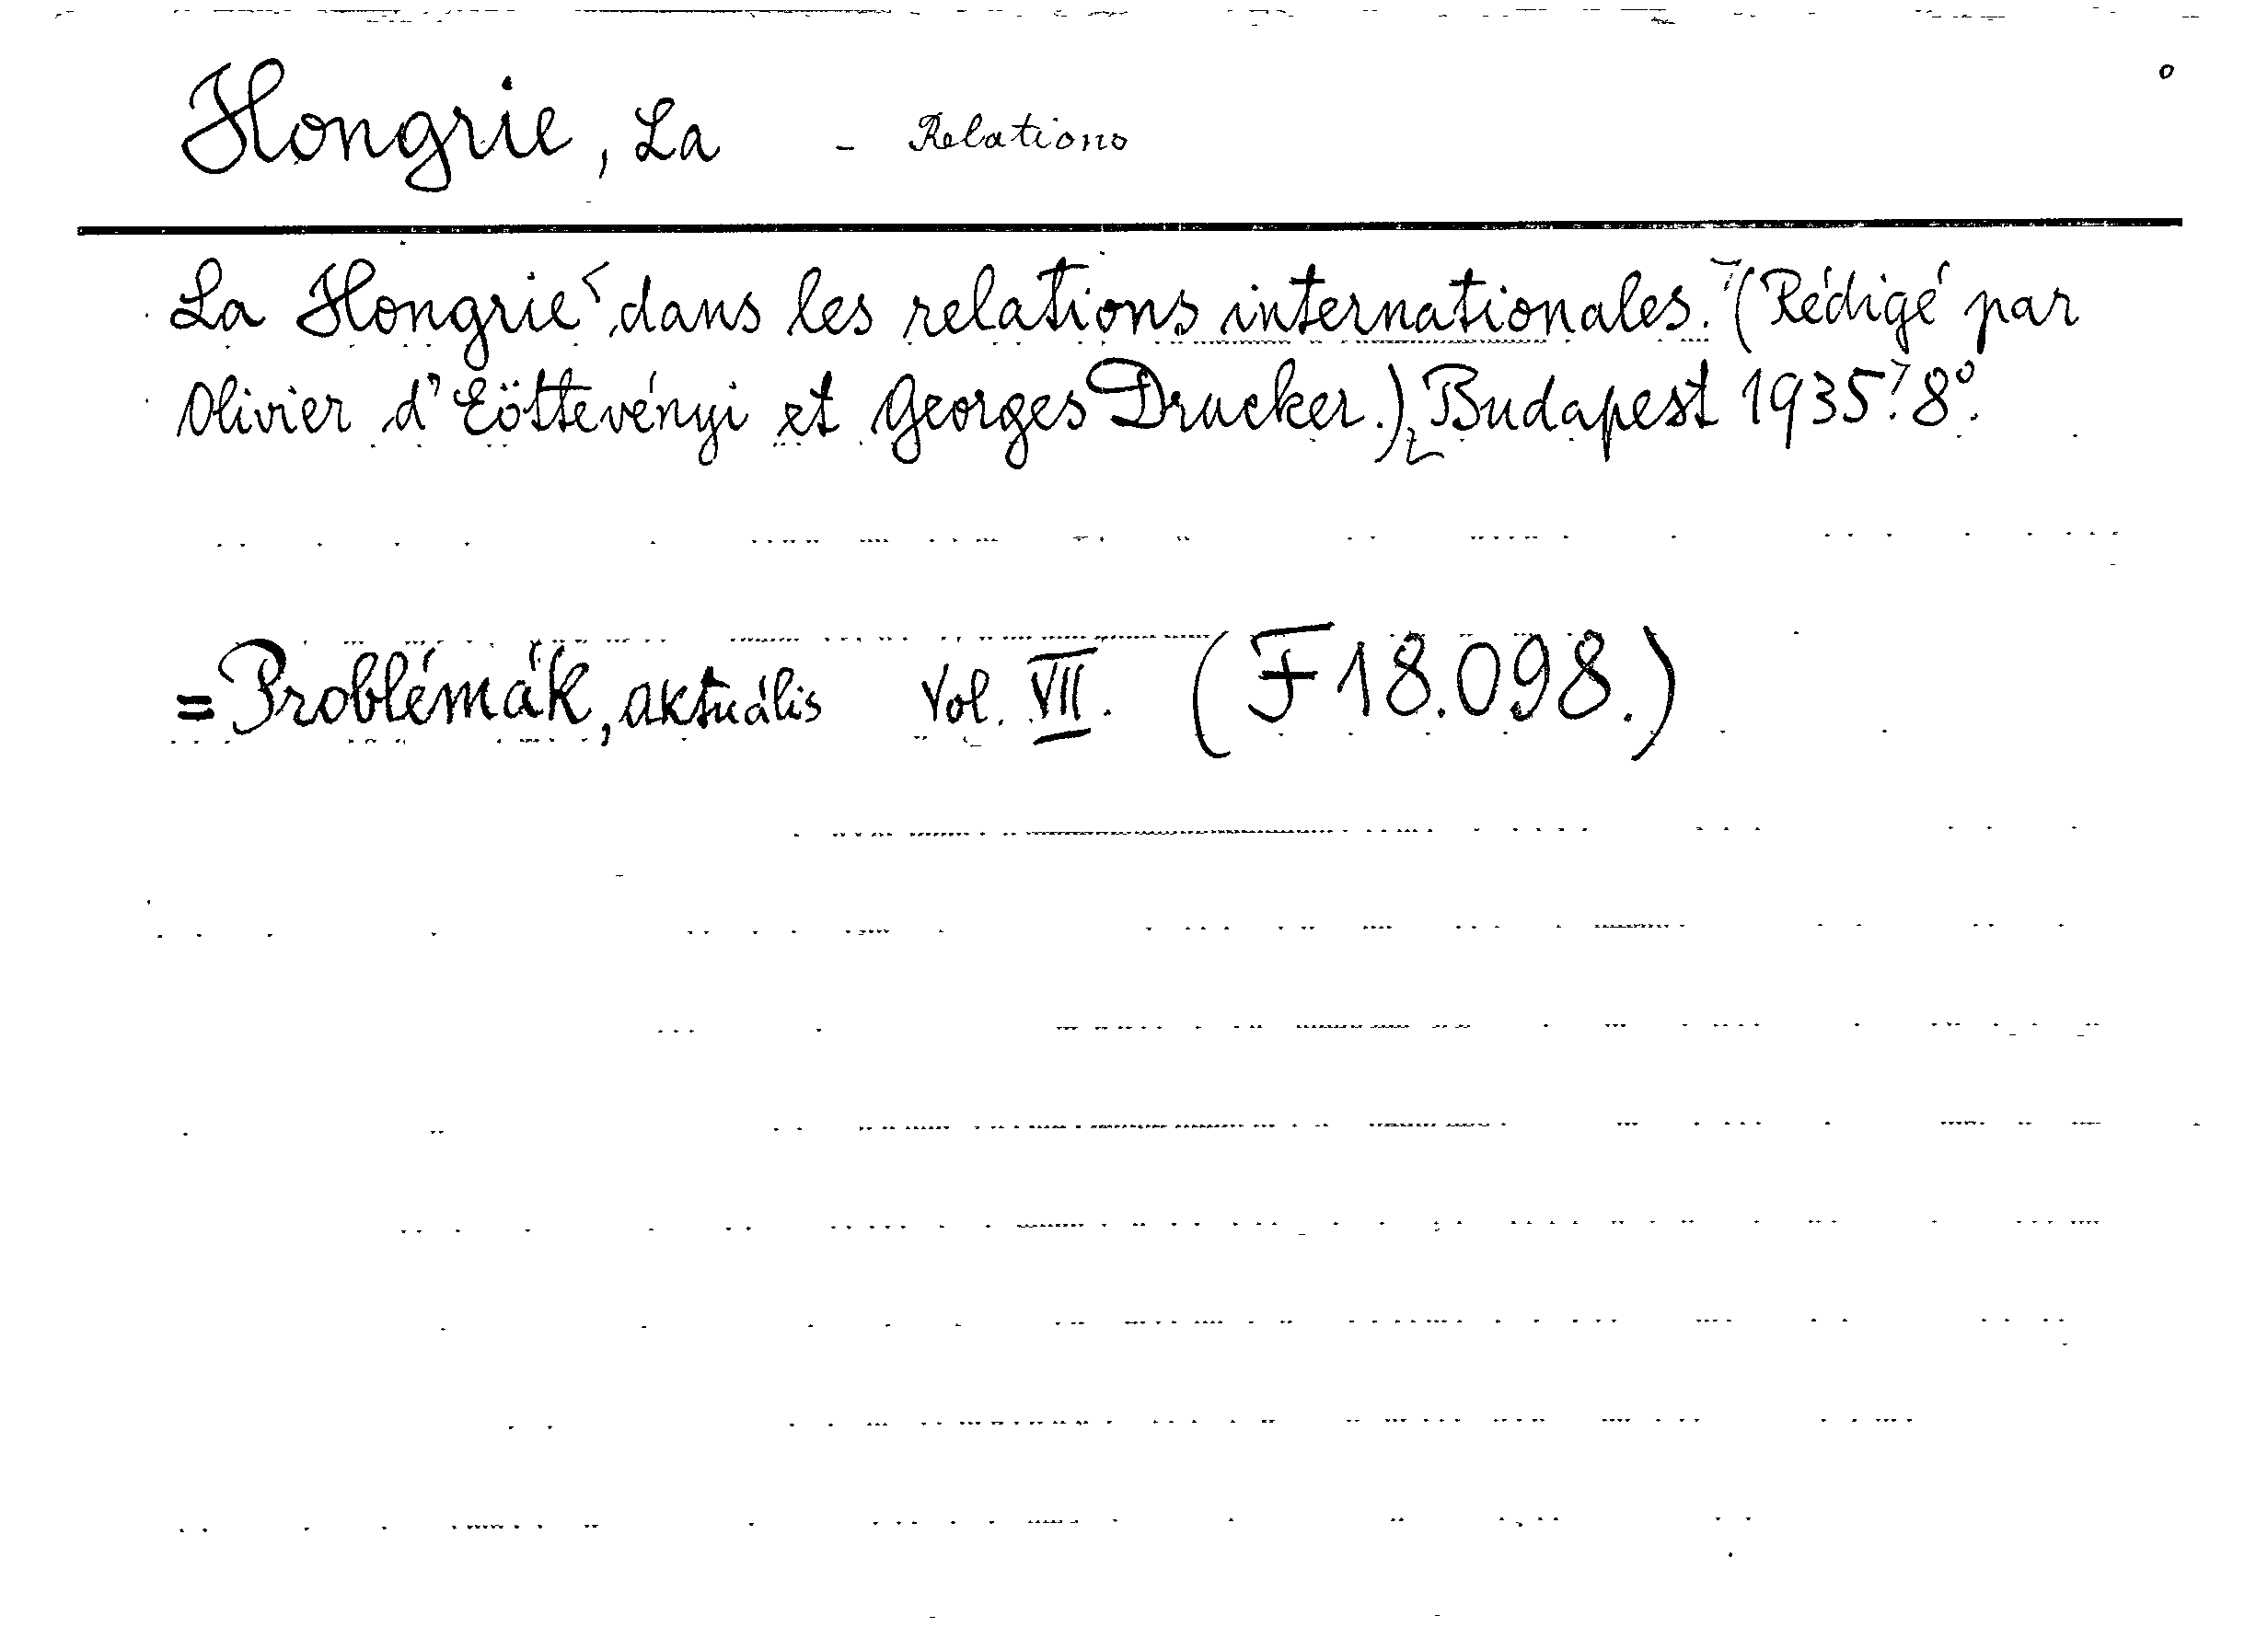 Hongrie, La - Relations
La Hongrie dans les relations internationales. (Rédigé par
Olivier d'Eöttevényi et Georges Drucker.) Budapest 1935. 8°.
= Problémák, aktuális Vol. VII. (F 18.098.)